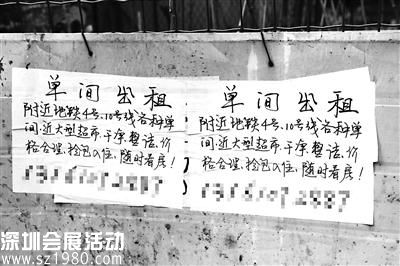 单间出租
附近地铁4号、10号线各种单
间,近大型超市,干净整洁,价
格合理,拎包入住,随时看房!
单间出租
附近地铁4号、10号线各种单
间,近大型超市,干净整洁,价
格合理,拎包入住,随时看房!
深圳会展活动
www.sz1980.com